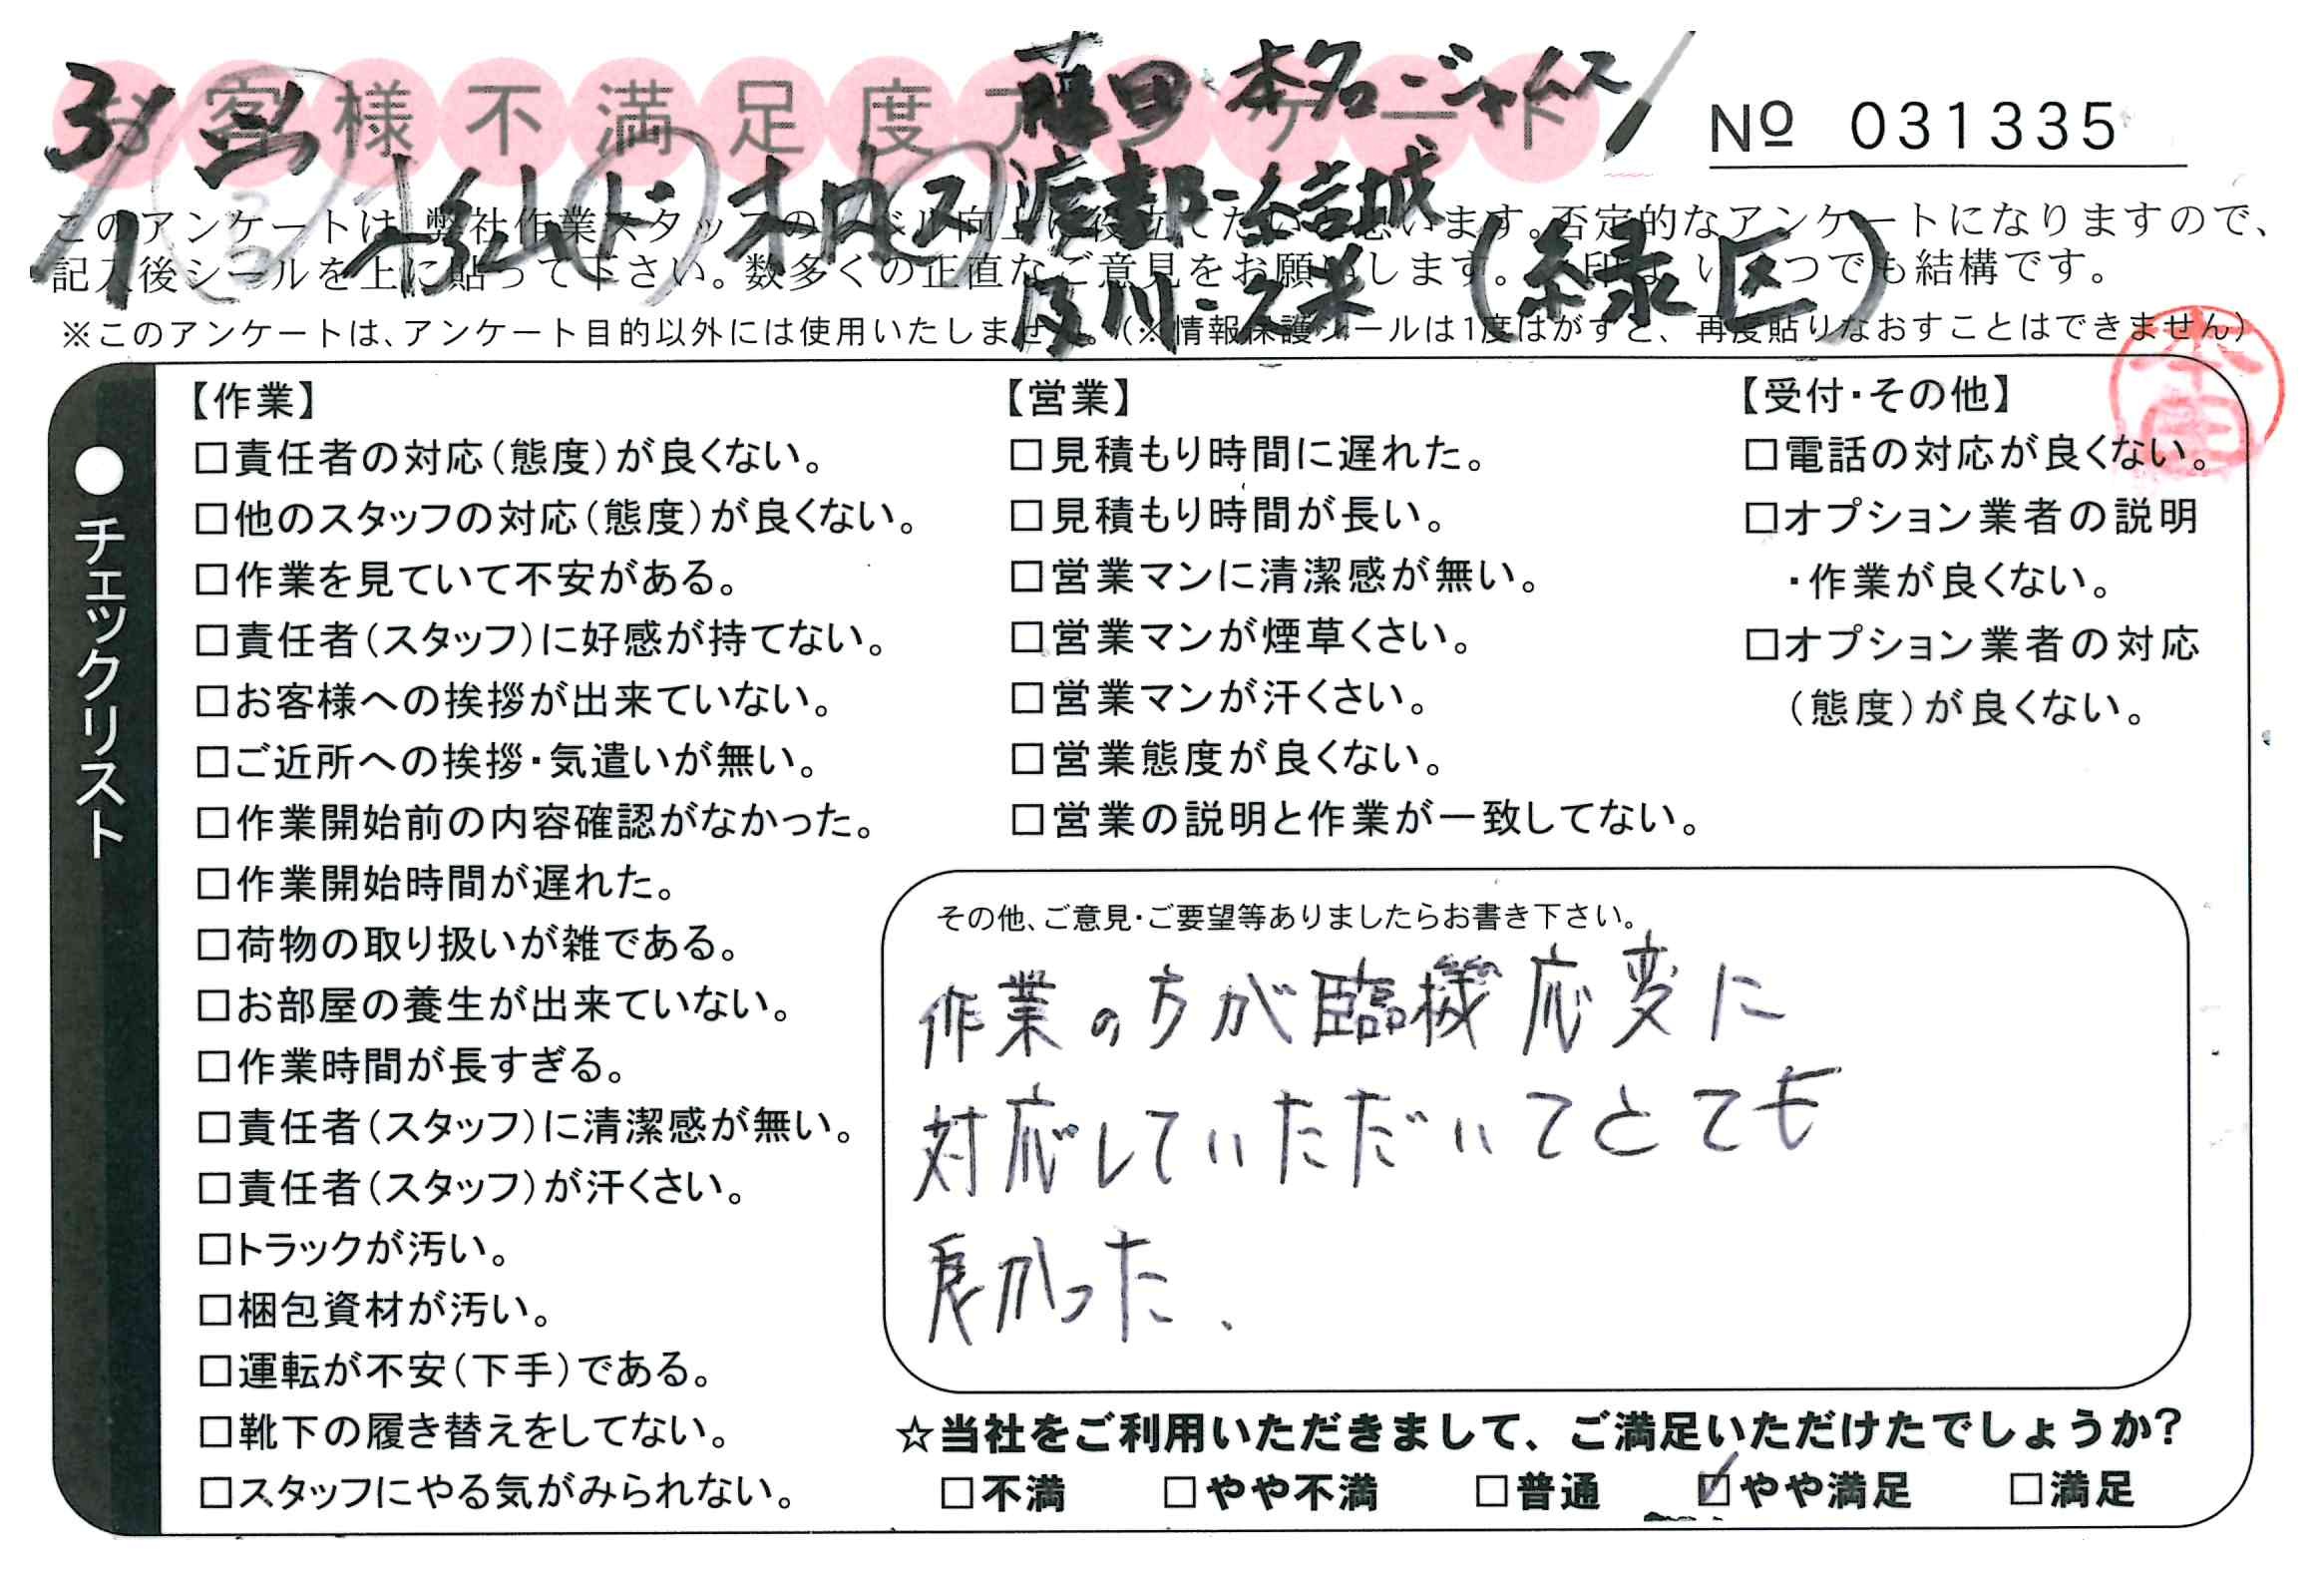 お客様不満足度アンケート
№ 031335
藤田 本名 ジャイムス
渡部・結城
及川・久米
(緑区)
このアンケートは、弊社作業スタッフのレベル向上に役立てたいと思います。否定的なアンケートになりますので、
記入後シールを上に貼って下さい。数多くの正直なご意見をお願いします。
※このアンケートは、アンケート目的以外には使用いたしません。(※情報保護シールは1度はがすと、再度貼りなおすことはできません)
本田
●チェックリスト
【作業】
□責任者の対応(態度)が良くない。
□他のスタッフの対応(態度)が良くない。
□作業を見ていて不安がある。
□責任者(スタッフ)に好感が持てない。
□お客様への挨拶が出来ていない。
□ご近所への挨拶・気遣いが無い。
□作業開始前の内容確認がなかった。
□作業開始時間が遅れた。
□荷物の取り扱いが雑である。
□お部屋の養生が出来ていない。
□作業時間が長すぎる。
□責任者(スタッフ)に清潔感が無い。
□責任者(スタッフ)が汗くさい。
□トラックが汚い。
□梱包資材が汚い。
□運転が不安(下手)である。
□靴下の履き替えをしてない。
□スタッフにやる気がみられない。
【営業】
□見積もり時間に遅れた。
□見積もり時間が長い。
□営業マンに清潔感が無い。
□営業マンが煙草くさい。
□営業マンが汗くさい。
□営業態度が良くない。
□営業の説明と作業が一致してない。
【受付・その他】
□電話の対応が良くない。
□オプション業者の説明
・作業が良くない。
□オプション業者の対応
(態度)が良くない。
その他、ご意見・ご要望等ありましたらお書き下さい。
作業の方が臨機応変に
対応していただいてとても
良かった、
☆当社をご利用いただきまして、ご満足いただけたでしょうか?
□不満 □やや不満 □普通 ☑やや満足 □満足